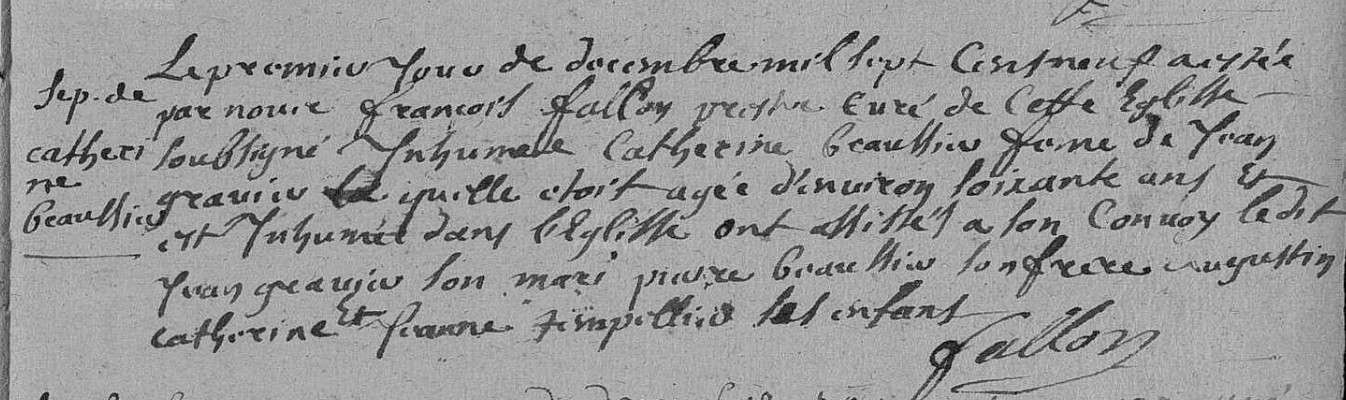 Le premier Jour de decembre mil sept Cens neuf a estée
Sep. de
par nous françois fallon prestre Curé de Cette Eglisse
catheri
soubsigné Inhumee Catherine beaussier feme de Jean
ne
gravier la quelle etoit agée d'environ soixante ans Et
beaussier
est Inhumée dans l'Eglisse ont assistés a son Convoy ledit
Jean gravier son mari pierre beaussier son frere augustin
catherine Et Jeanne tempellier ses enfans
fallon